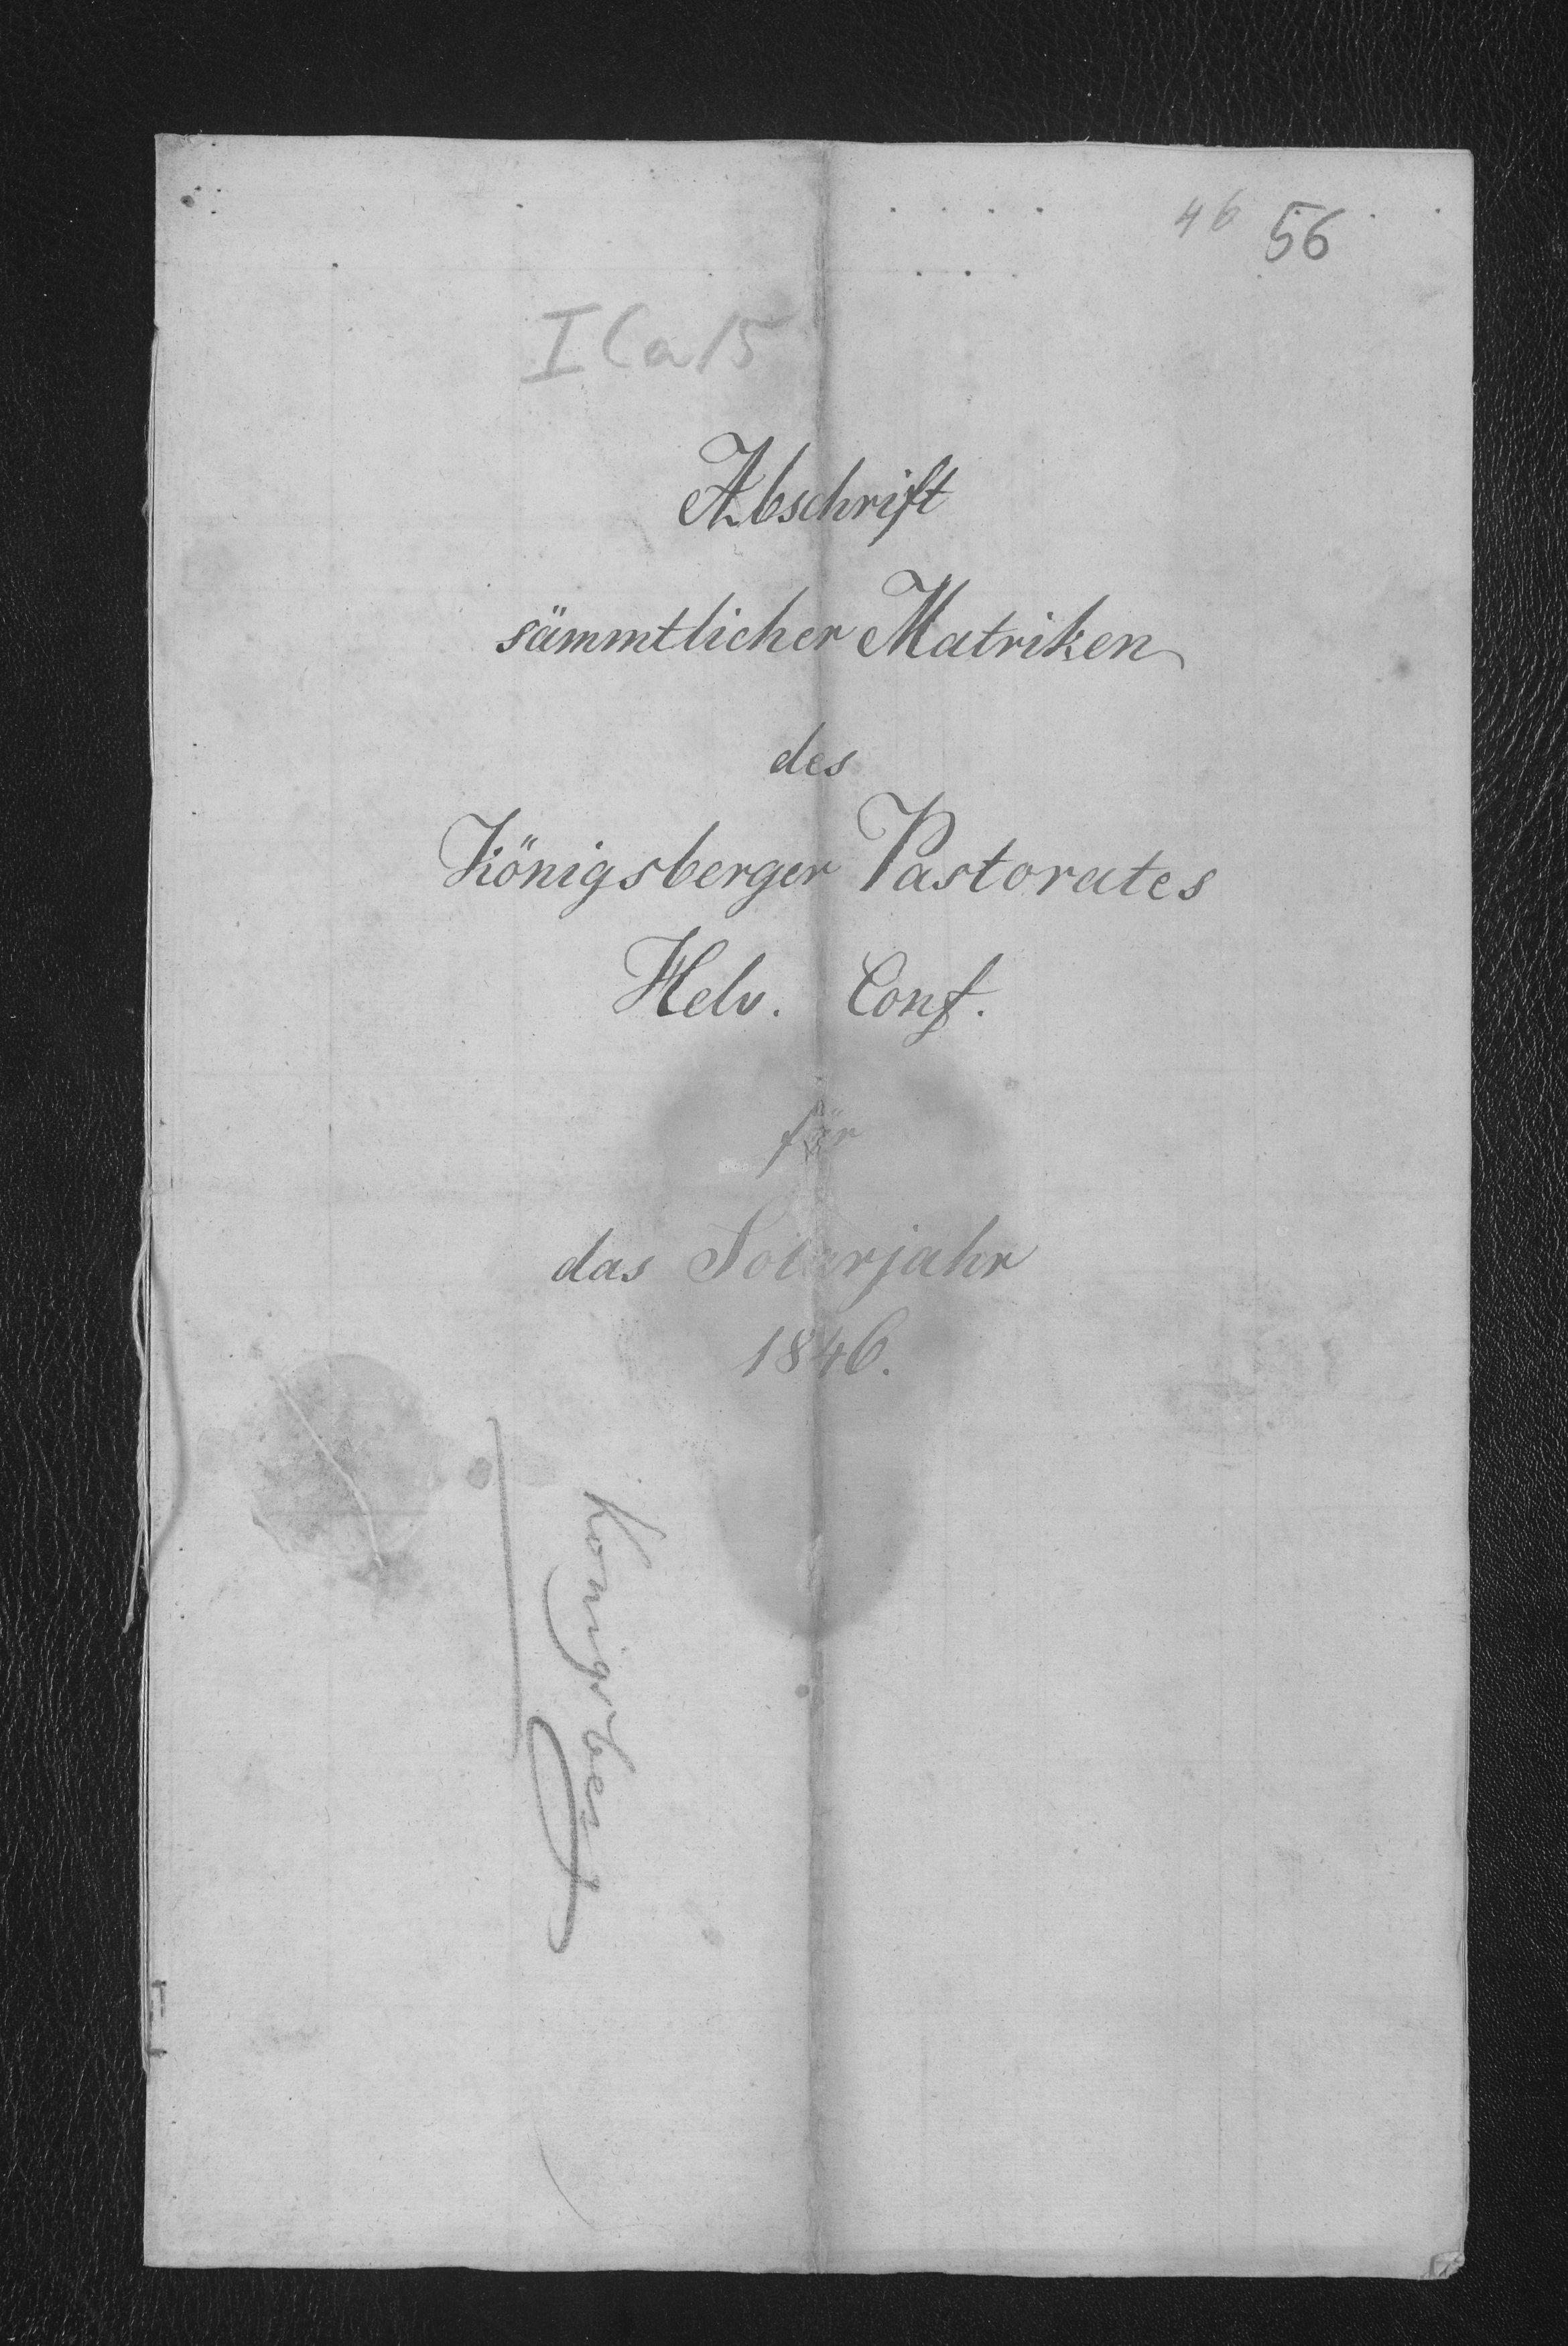 46 56
I Ca 15
Abschrift
sämmtlicher Matriken
des
Königsberger Pastorates
Helv. Conf.
für
das Solarjahr
1846.
Königsberg